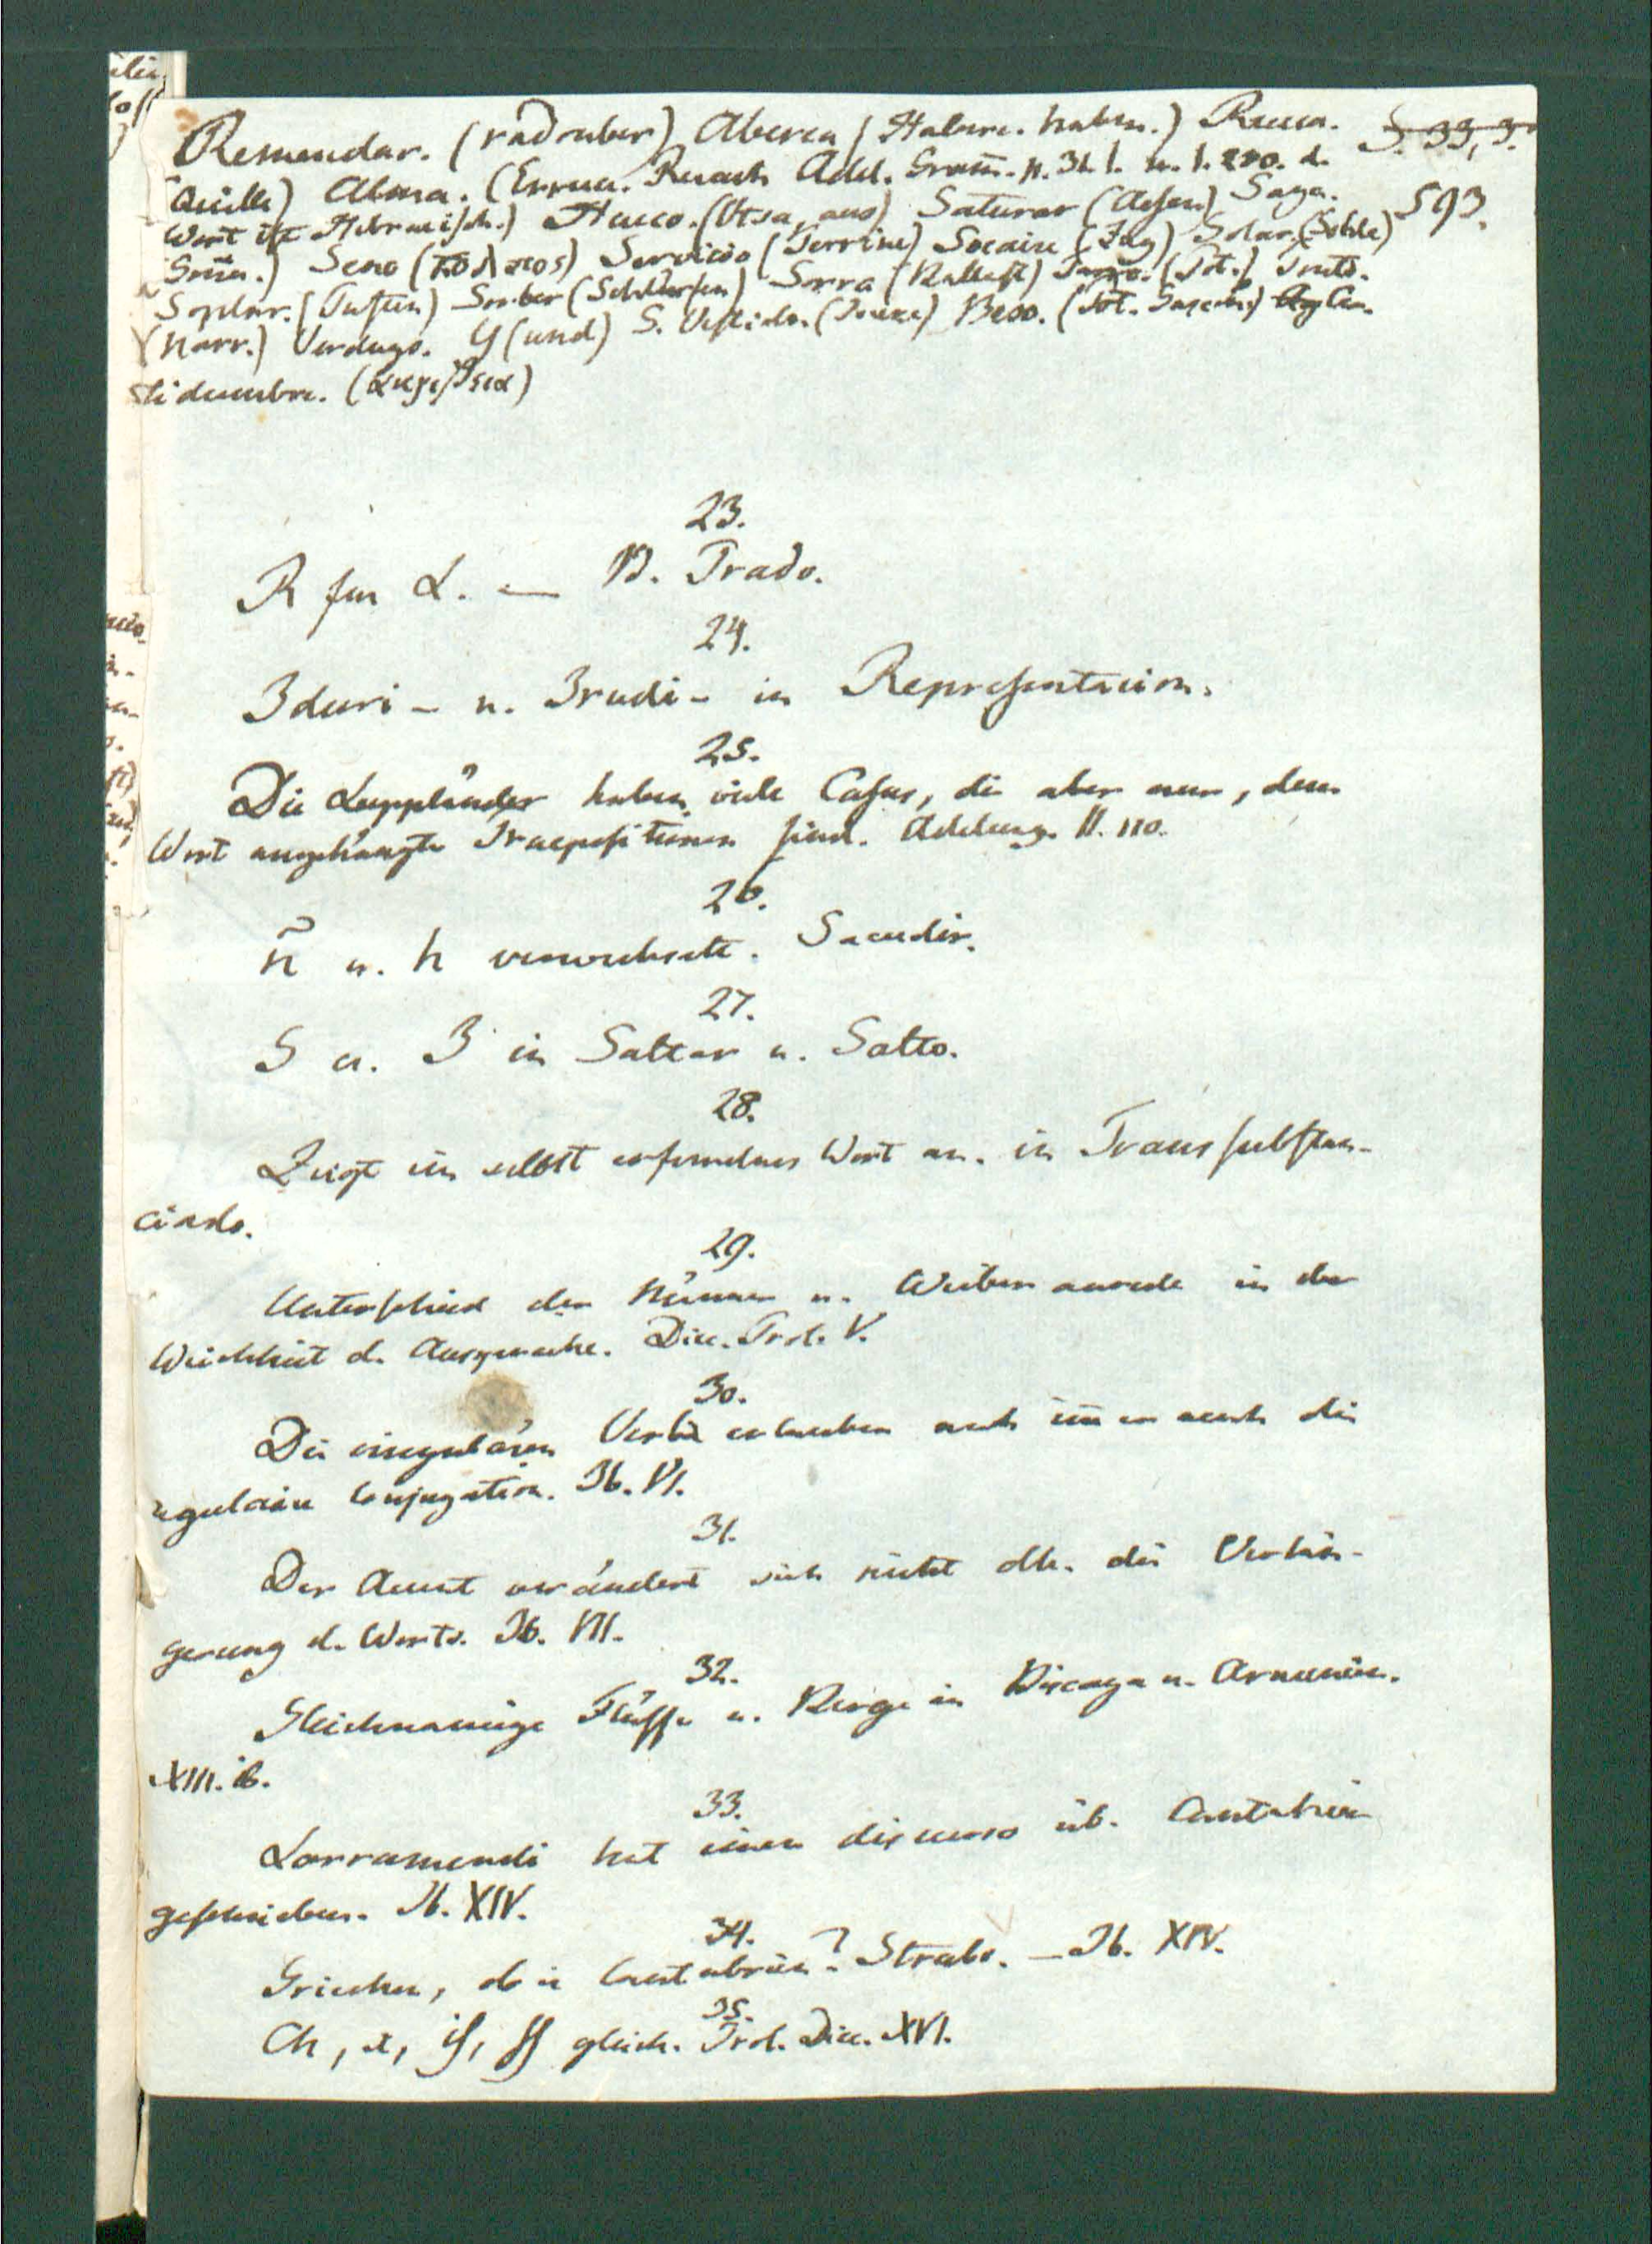 Remendar. (radouber) Aberea (Habere. haben.) Rueca. S. 33, 3.
(Quille) Alma. (Errua. Ruach Add. Gram̅. n. 31. l. u. l. d.
Wort ist Hebraeisch.) Hueco. (Utsa, aus) Saturar (Asse) Saga. 593.
Seno (κόλπος) Servicio (Terrine) Socaire (Zug) Solar. (Sohle)
Soplar. (Pusten) Sorber (Schlürfen) Sorra (Ballast) Tonto.
(Narr.) Verdugo. Y (und) S. Vestido. Beso.
tidumbre.
23.
R für L. — B. Prado.
24.
Iduri- u. Irudi- in Representacion.
25.
Die Lappländer haben viele Casus, die aber nur, dem
Wort angehängte Praepositionen sind. Adelung. II. 110.
26.
ñ u. h verwechselt. Sacudir.
27.
S u. Z in Saltar u. Salto.
28.
Zeigt ein selbst erfundnes Wort an. in Transsubstan-
ciado.
29.
Unterschied der Männer u. Weiber anrede in der
Weichheit d. Aussprache. Dicc. Prol. V.
30.
Die irregulären Verba erlauben auch im̅er auch die
regulaire Conjugation. Ib. VI.
31.
Der Accent verändert sich nicht dch. die Verlän-
gerung d. Worts. Ib. VII.
32.
Gleichnamige Flüsse u. Berge in Biscaya u. Armenien.
XIII. ib.
33.
Larramendi hat einen discurso üb. Cantabrien
geschrieben. Ib. XIV.
34.
Griechen, ob in Cantabrien? Strabo. — Ib. XIV.
35.
Ch, x, is, ss gleich. Prol. Dicc. XVI.